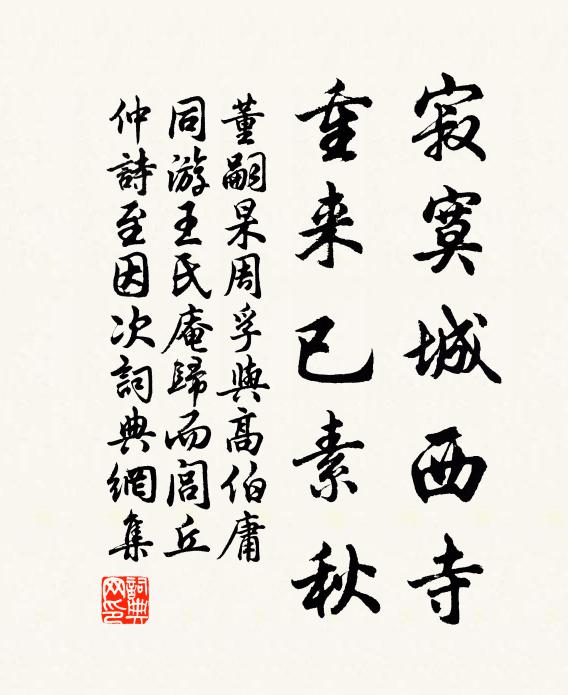 寂寞城西寺
重来已素秋
董嗣杲周孚與高伯庸
同游王氏庵歸而閭丘
仲詩至因次詞典網集
詞典網印